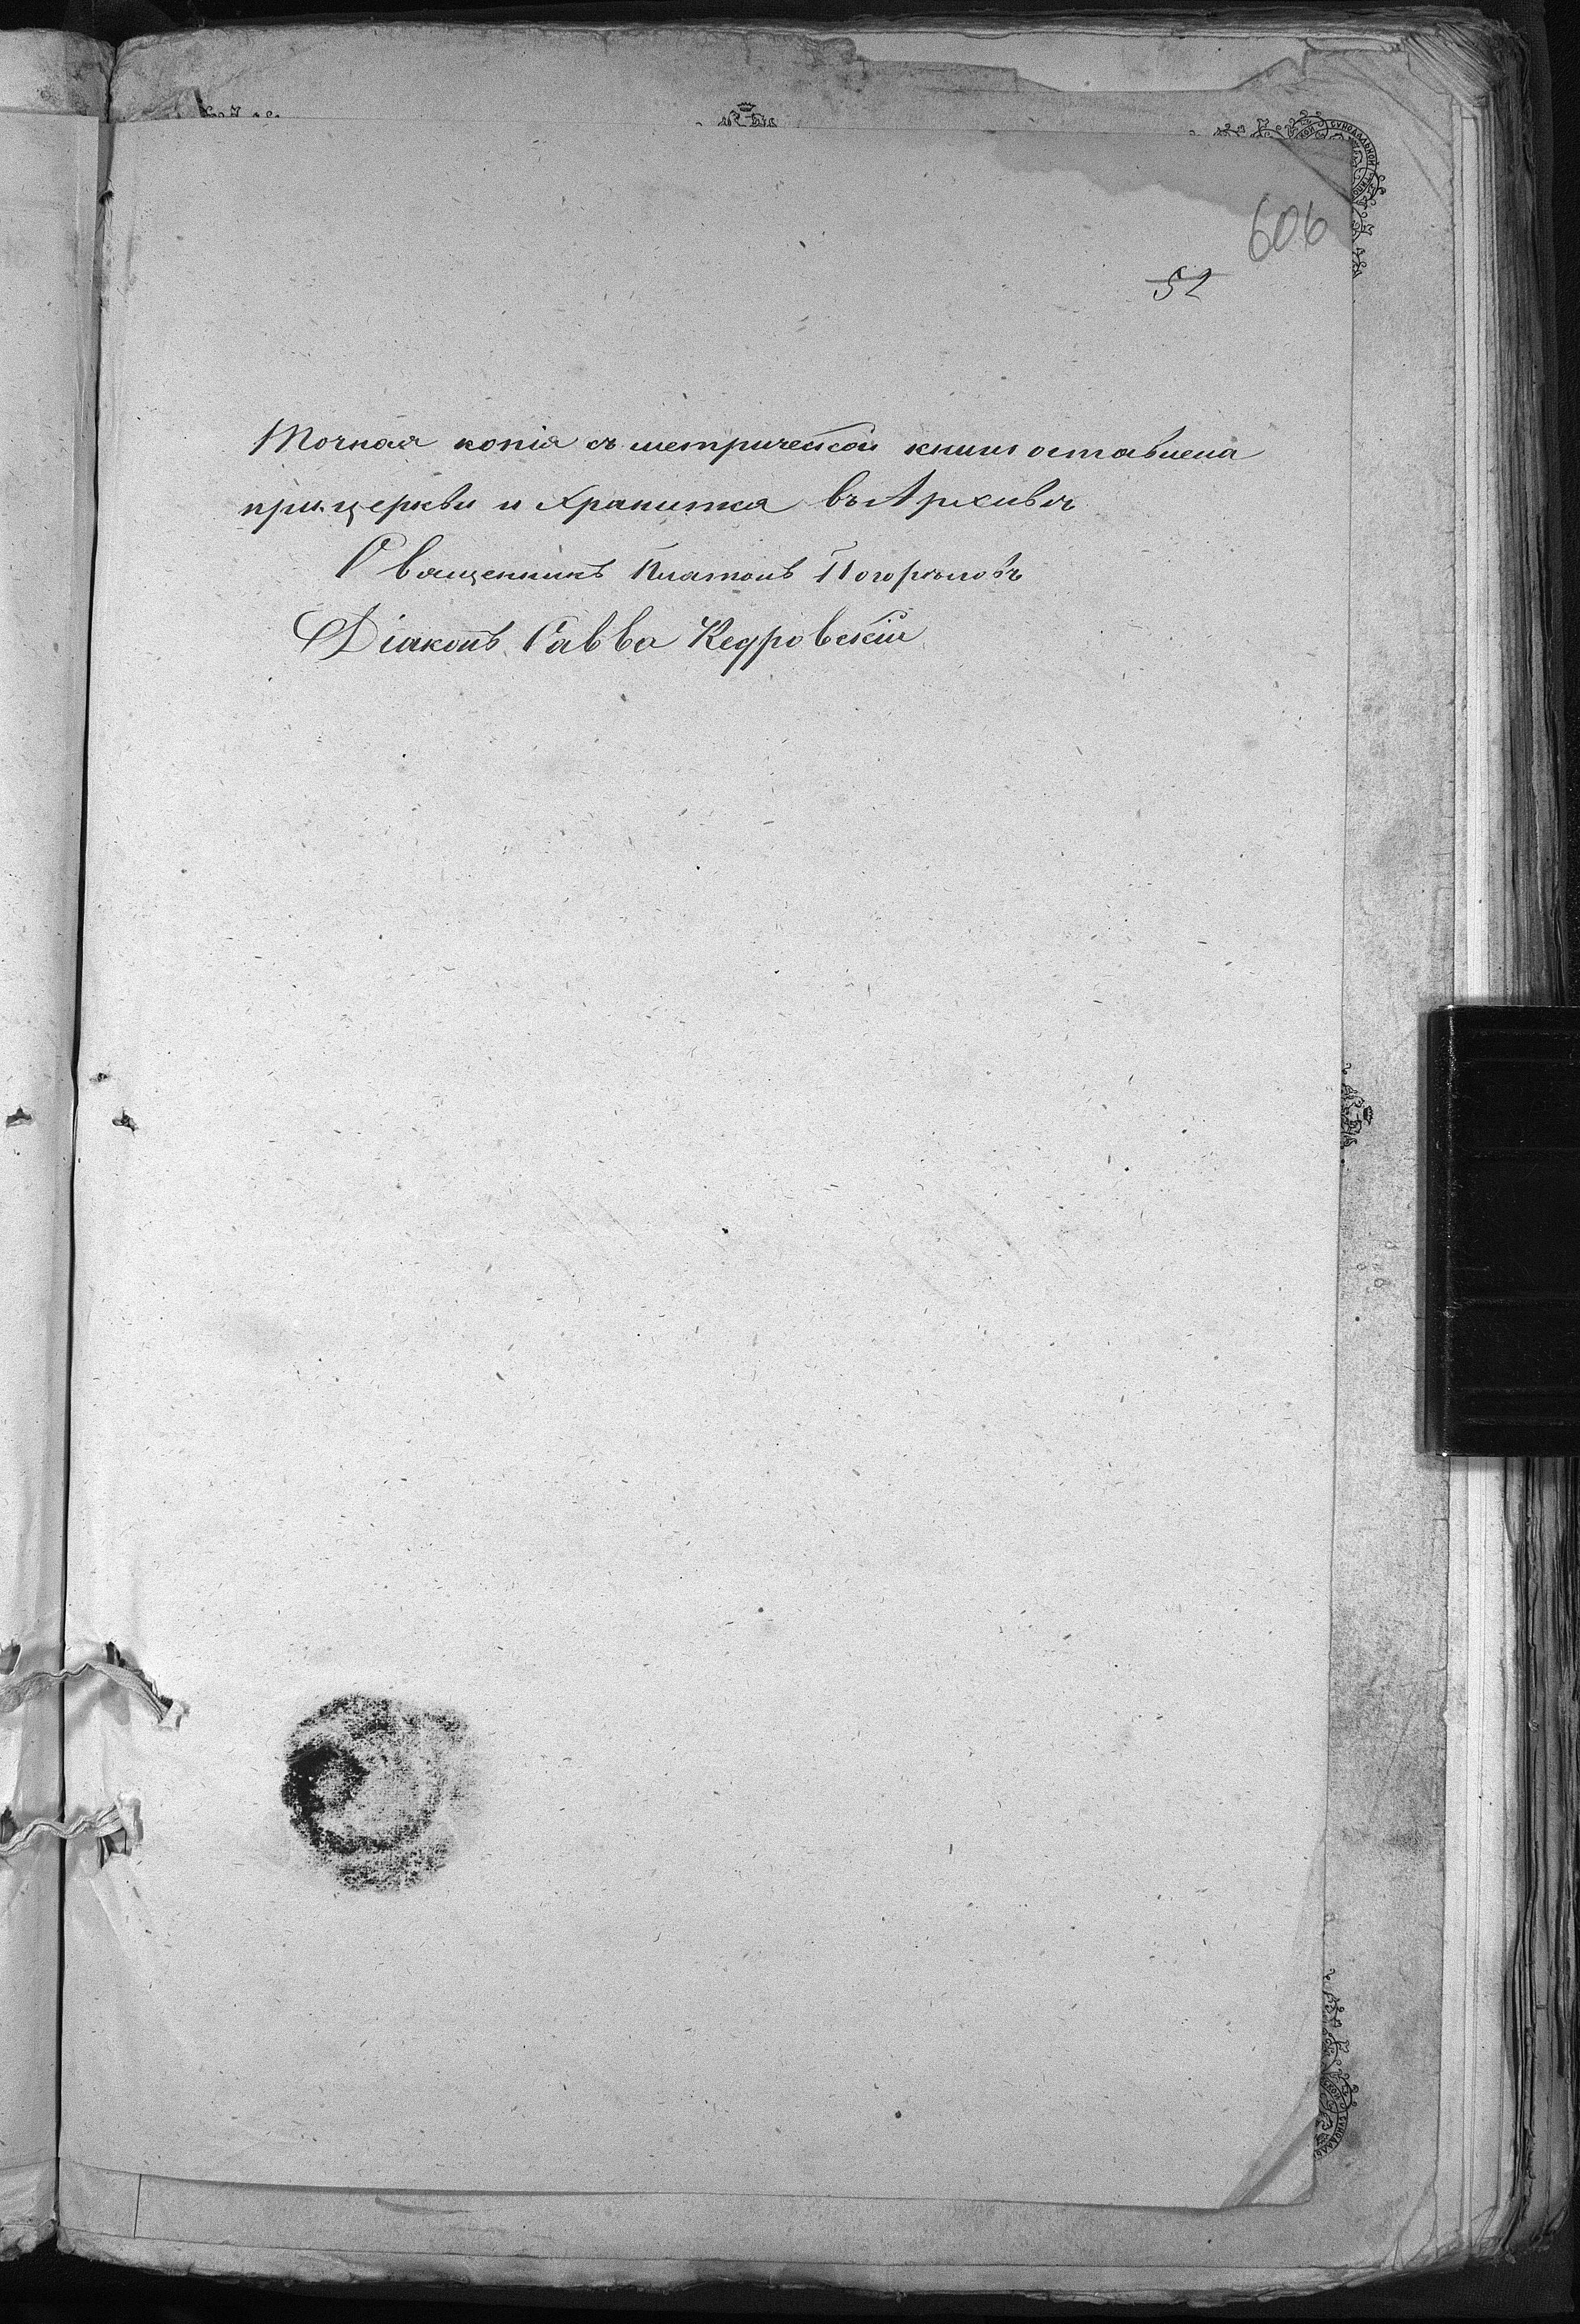 606
52
Точная копія съ метрической книги оставлена
при церкви и хранится въ Архивѣ
Священникъ Платонъ Погорѣловъ
Діаконъ Савва Кедровскій